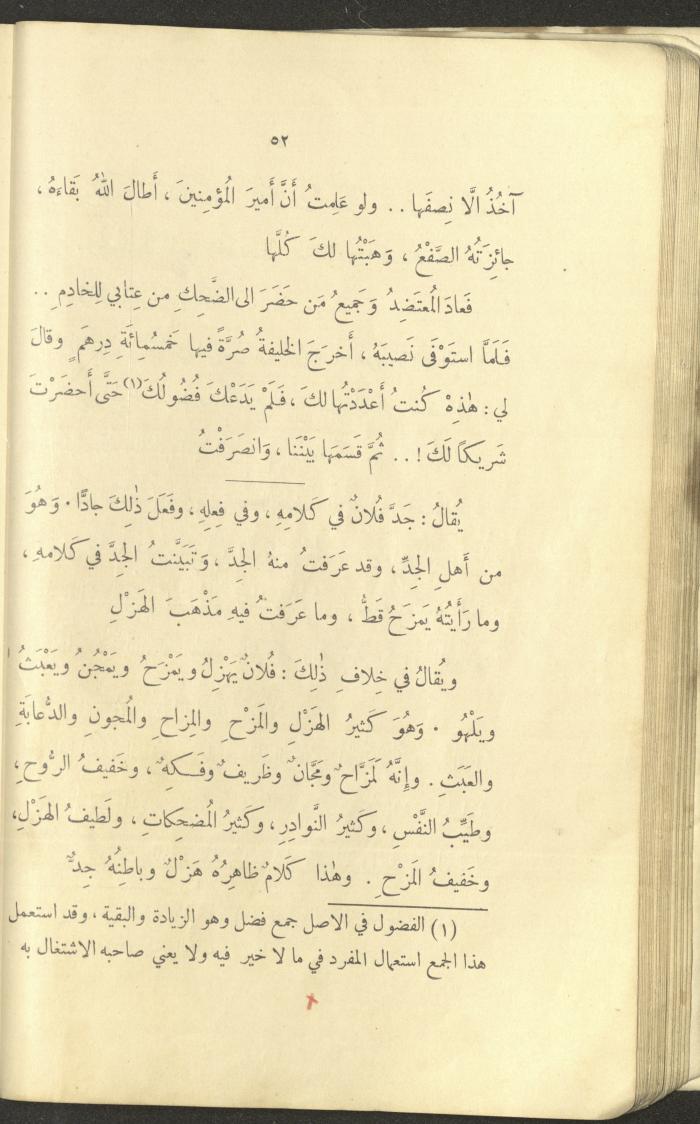 ٥٢
آخُذُ الَّا نِصفَها . . ولو عَلِمتُ أَنَّ أَميرَ الْمُؤمِنينَ ، أَطالَ اللهُ بَقاءَهُ ،
جائِزَتُهُ الصَّفْعُ ، وَهَبْتُها لكَ كُلَّها
فَعادَ الْمُعتَضِدُ وَجَميعُ مَن حَضَرَ الى الضَّحِكِ من عِتابي لِلخادِمِ . .
فَلَمَّا استَوْفَى نَصيبَهُ ، أَخرَجَ الخليفةُ صُرَّةً فيها خَمسُمِائَةِ دِرهَمٍ وقالَ
لي : هٰذِهْ كُنتُ أَعْدَدْتُها لكَ ، فَلَمْ يَدَعْكَ فُضُولُكَ (١) حَتَّى أَحضَرْتَ
شَريكاً لَكَ ! . . ثُمَّ قَسَمَها بَيْنَنا ، وَانصَرَفْتُ
يُقالُ : جَدَّ فُلانٌ في كَلامِهِ ، وفي فِعلِهِ ، وفَعَلَ ذٰلِكَ جادًّا . وَهُوَ
من أَهلِ الجِدِّ ، وقد عَرَفتُ منهُ الجِدَّ ، وَتَبَيَّنتُ الجِدَّ في كَلامهِ ،
وما رَأَيتُهُ يَمزَحُ قَطُّ ، وما عَرَفتُ فيهِ مَذْهَبَ الهَزْلِ
ويُقالُ في خِلافِ ذٰلِكَ : فُلانٌ يَهْزِلُ ويَمْزَحُ ويَمْجُنُ ويَعْبَثُ
ويَلْهُو . وَهُوَ كَثيرُ الهَزْلِ والمَزْحِ والمِزاحِ والمُجونِ والدُّعابَةِ
والعَبَثِ . وإِنَّهُ لَمَزَّاحٌ ومَجَّانٌ وظَريفٌ وفَكِهٌ ، وخَفيفُ الرُّوحِ ،
وطَيِّبُ النَّفْسِ ، وكَثيرُ النَّوادِرِ ، وكَثيرُ الْمُضحِكاتِ ، ولَطيفُ الهَزْلِ ،
وخَفيفُ المَزْحِ . وهٰذا كَلامٌ ظاهِرُهُ هَزْلٌ وباطِنُهُ جِدٌّ
(١) الفضول في الاصل جمع فضل وهو الزيادة والبقية ، وقد استعمل
هذا الجمع استعمال المفرد في ما لا خير فيه ولا يعني صاحبه الاشتغال به